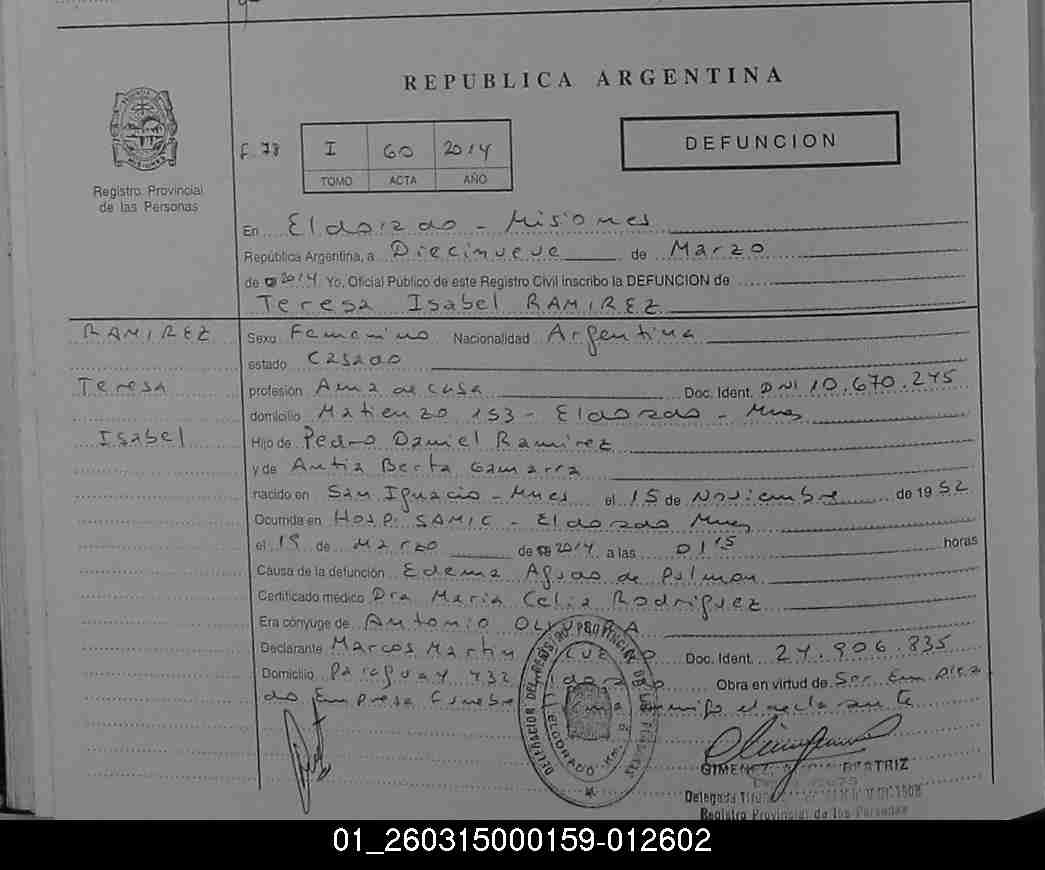 REPUBLICA ARGENTINA
Registro Provincial
de las Personas
F. 78
I 60 2014
TOMO ACTA AÑO
DEFUNCION
En Eldorado - Misiones
República Argentina, a Diecinueve de Marzo
de 2014 Yo, Oficial Público de este Registro Civil inscribo la DEFUNCION de
Teresa Isabel RAMIREZ
RAMIREZ
Teresa
Isabel
Sexo Femenino Nacionalidad Argentina
estado Casado
profesión Ama de casa Doc. Ident. DNI 10.670.245
domicilio Matienzo 153 - Eldorado - Mnes
Hijo de Pedro Daniel Ramirez
y de Berta Gamarra
nacido en San Ignacio - Mnes el 15 de Noviembre de 1952
Ocurrida en Hosp. SAMIC - Eldorado Mnes
el 19 de Marzo de 2014 a las 01:15 horas
Causa de la defunción Edema Agudo de Pulmon
Certificado médico Dra Maria Celia Rodriguez
Era cónyuge de Antonio OLIVERA
Declarante Marcos Martin Doc. Ident. 24.906.835
Domicilio Paraguay 432 Obra en virtud de Ser Emplea
do Empresa Funebre el acta ante
DELEGACION DEL REGISTRO PROVINCIAL DE LAS PERSONAS
ELDORADO
GIMENEZ BEATRIZ
Delegada Titular
Registro Provincial de las Personas
01_260315000159-012602